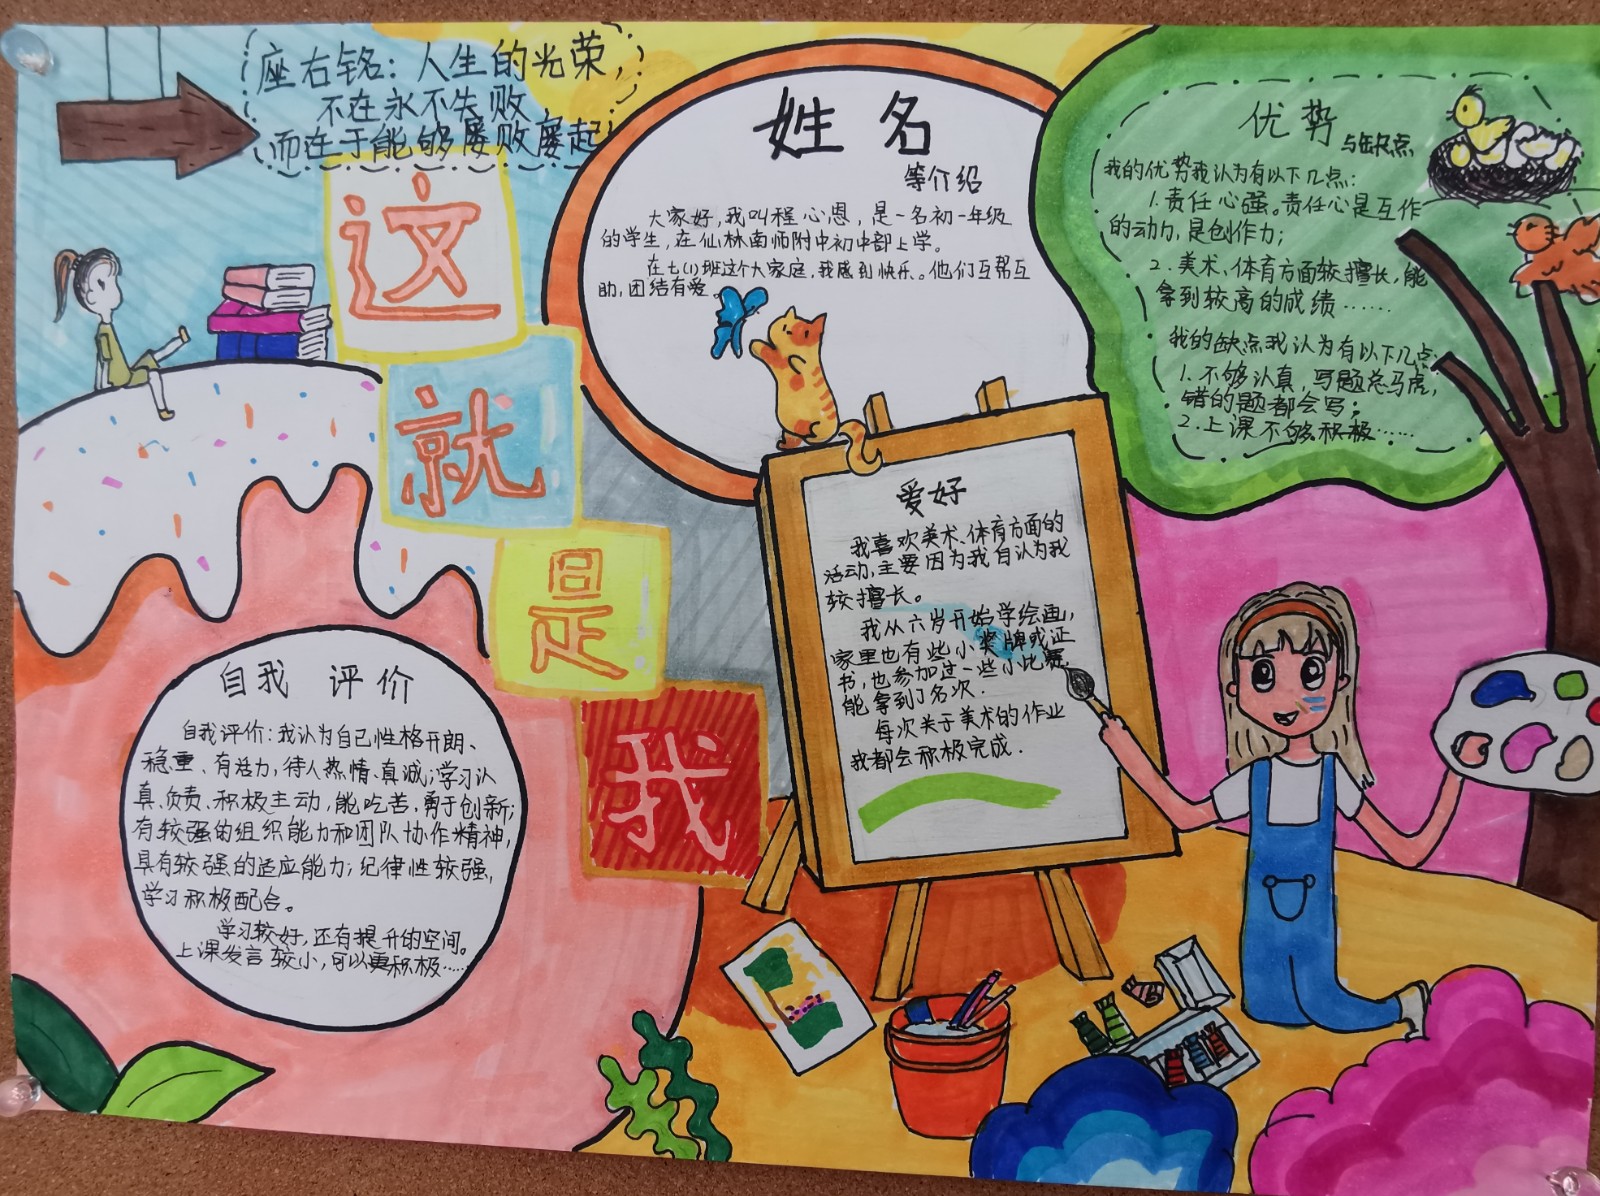 座右铭：人生的光荣，
不在永不失败，
而在于能够屡败屡起
这
就
是
我
姓名
等介绍
大家好，我叫程心恩，是一名初一年级
的学生，在仙林南师附中初中部上学。
在七(1)班这个大家庭，我感到快乐。他们互帮互
助，团结有爱。
优势
与缺点
我的优势我认为有以下几点：
1.责任心强。责任心是互作
的动力，是创作力；
2.美术、体育方面较擅长，能
拿到较高的成绩……
我的缺点我认为有以下几点：
1.不够认真，写题总马虎，
错的题都会写；
2.上课不够积极……
爱好
我喜欢美术、体育方面的
活动，主要因为我自认为我
较擅长。
我从六岁开始学绘画，
家里也有些小奖牌或证
书，也参加过一些小比赛，
能拿到了名次.
每次关于美术的作业
我都会积极完成.
自我 评价
自我评价：我认为自己性格开朗、
稳重、有活力，待人热情、真诚；学习认
真、负责、积极主动，能吃苦，勇于创新；
有较强的组织能力和团队协作精神，
具有较强的适应能力；纪律性较强，
学习积极配合。
学习较好，还有提升的空间。
上课发言较小，可以更积极……